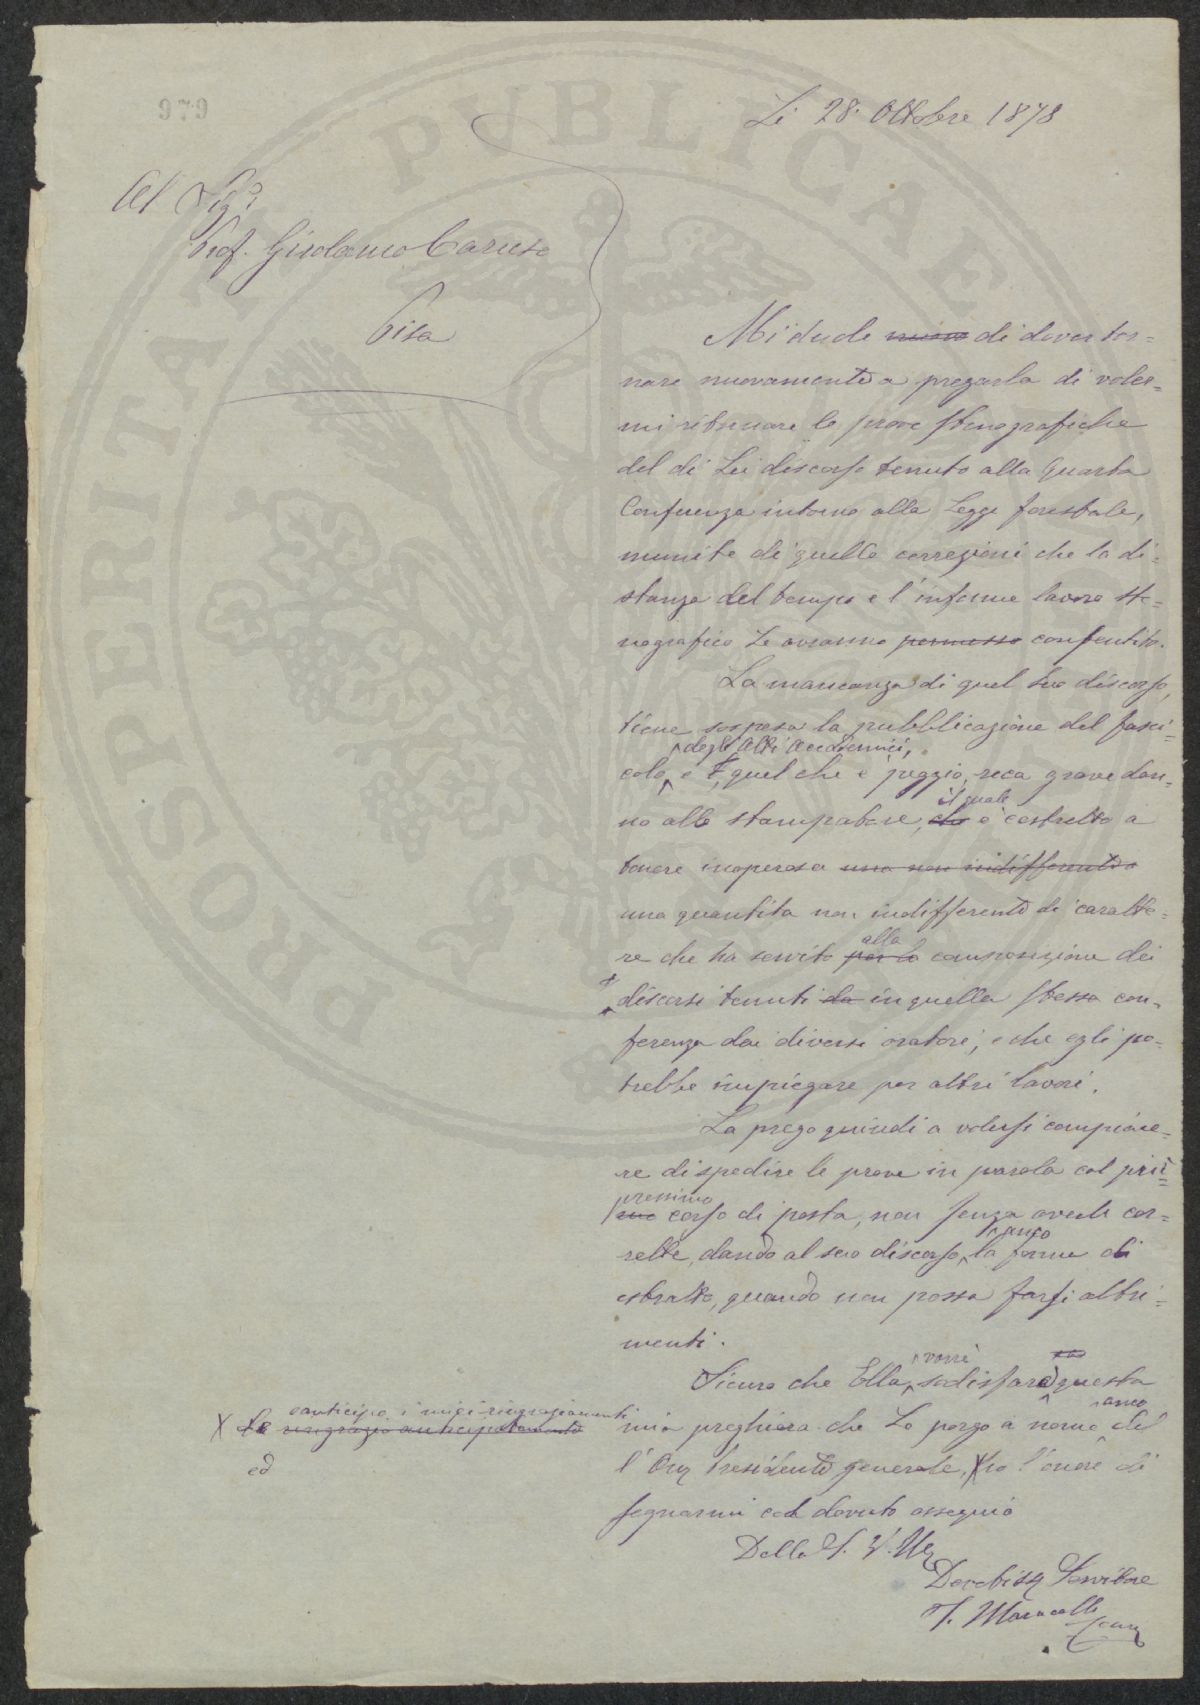 979
Li 28. Ottobre 1878
Al Sig.r
Prof. Girolamo Caruso
Pisa
Mi duole nuovo di dover tor=
nare nuovamente a pregarla di voler=
mi ritornare le prove stenografiche
del di Lei discorso tenuto alla Quarta
Conferenza intorno alla Legge forestale,
munite di quelle correzioni che la di=
stanza del tempo e l'informe lavoro ste=
nografico Le avranno permesso consentito.
La mancanza di quel Suo discorso,
tiene sospesa la pubblicazione del fasci=
degli Atti Accademici,
colo, e quel che è peggio, reca grave dan=
il quale
no allo stampatore, che è costretto a
tenere inoperosa una non indifferente
una quantità non indifferente di caratte=
alla
re che ha servito per la composizione dei
discorsi tenuti da in quella stessa con=
ferenza dai diversi oratori, e che egli po=
trebbe impiegare per altri lavori.
La prego quindi a volersi compiace=
re di spedire le prove in parola col pri=
prossimo
mo corso di posta, non senza averle cor=
anco
rette, dando al suo discorso, la forma di
estratto, quando non possa farsi altri=
menti.
vorrà
Sicuro che Ella, sodisfare questa
anco
mia preghiera che Le porgo a nome del
l'On. Presidente generale, X ho l'onore di
X anticipo i miei ringraziamenti
La ringrazio anticipatamente
ed
segnarmi col dovuto ossequio
Della S. V. Ill.
Devotiss. Servitore